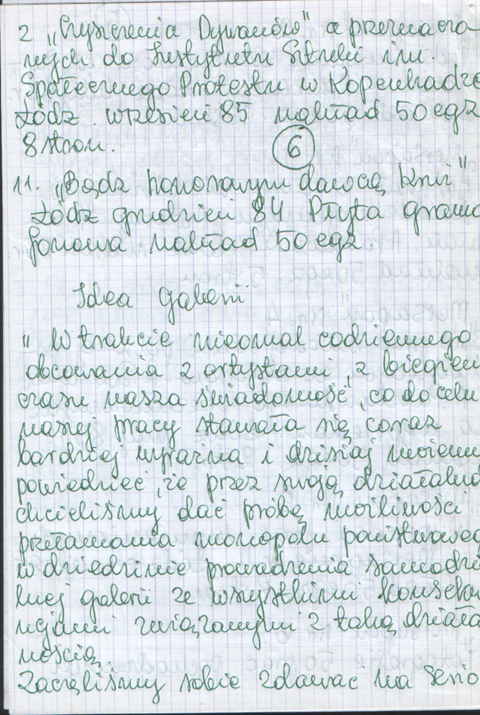 z „Czyszczenia Dywanów" a przeznaczo
nych do Instytutu Sztuki im.
Społecznego Protestu w Kopenhadze
Łódź. wrzesień 85 nakład 50 egz
8 stron.
6
11. „Bądź honorowym dawcą krwi"
Łódź grudzień 84 Płyta gramo
fonowa nakład 50 egz.
Idea galerii
„ W trakcie nieomal codziennego
obcowania z artystami, z biegiem
czasu nasza świadomość, co do celu
naszej pracy stawała się coraz
bardziej wyraźna i dzisiaj możemy
powiedzieć, że przez swoją działalno
chcieliśmy dać próbę możliwości
przełamania monopolu państwoweg
w dziedzinie prowadzenia samodzie
lnej galerii ze wszystkimi konsekwe
ncjami związanymi z taką działa
nością
Zaczęliśmy sobie zdawać na serio